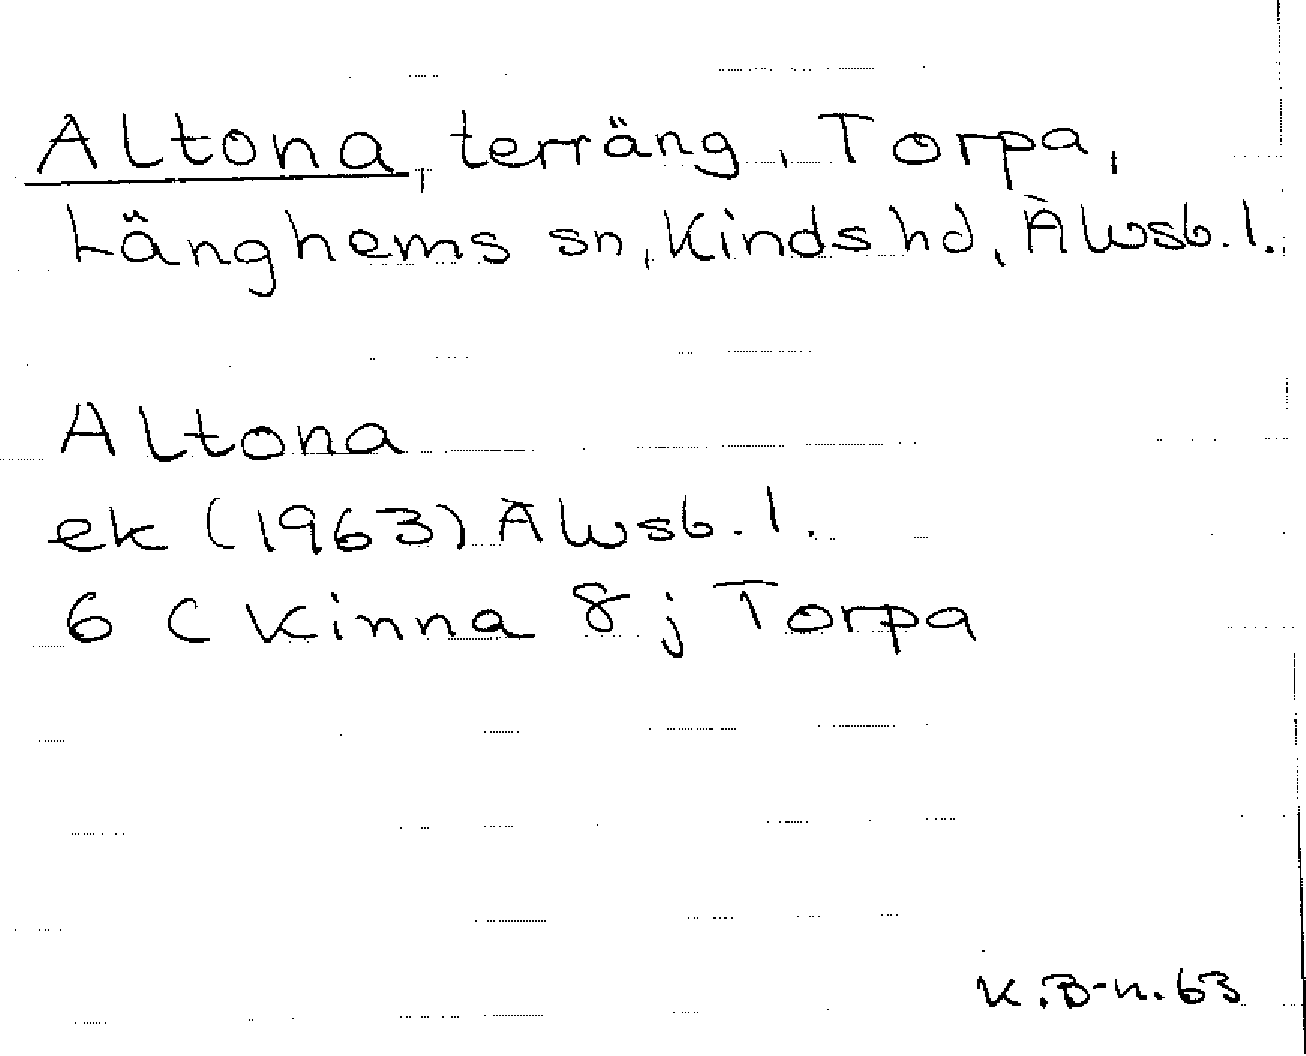 Altona, terräng, Torpa,
Länghems sn, Kinds hd, Älvsb. l.
Altona
ek (1963) Älvsb. l.
6 C Kinna 8 j Torpa
K.B-n. 63